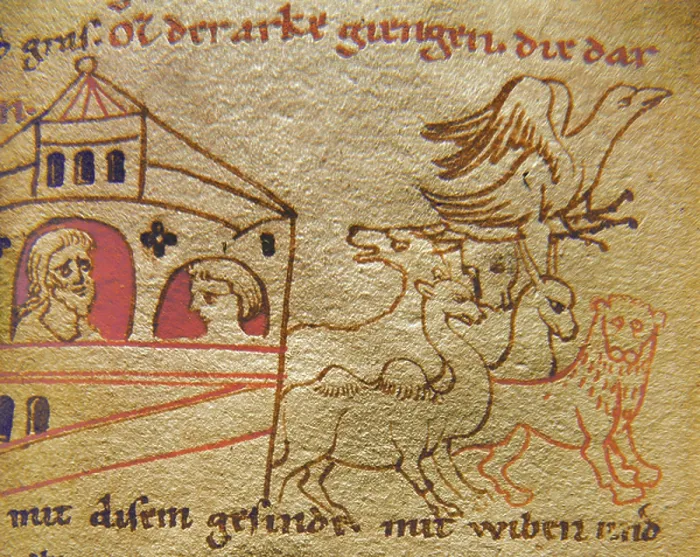 gras. Oi der arke giengen. die dar
mit disem gesinde. mit wiben und